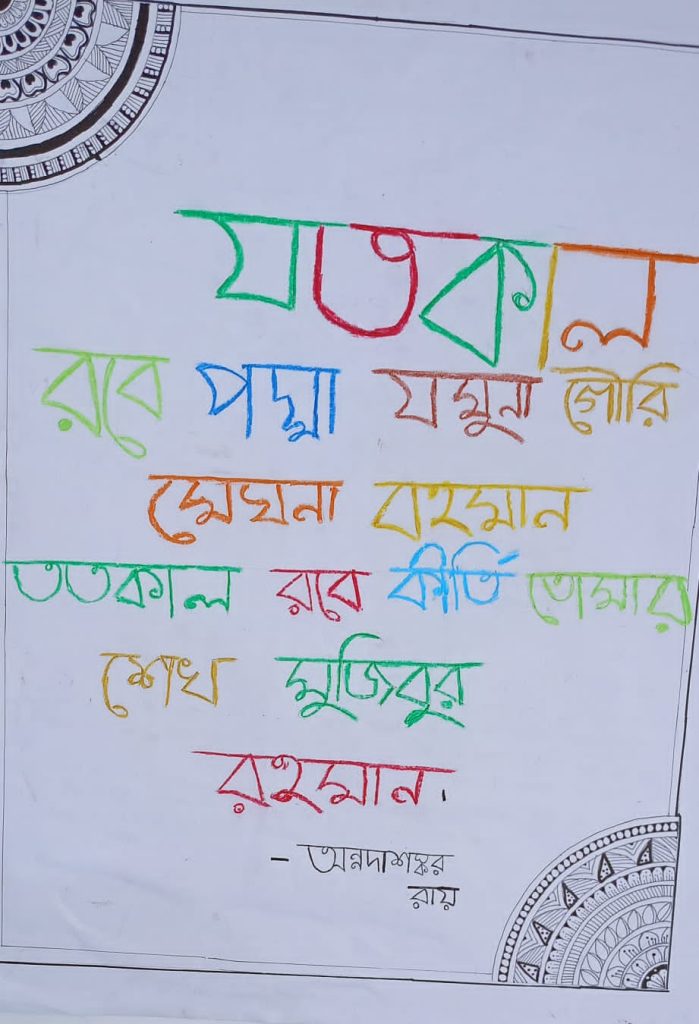 যতকাল
রবে পদ্মা যমুনা গৌরি
মেঘনা বহমান
ততকাল রবে কীর্তি তোমার
শেখ মুজিবুর
রহমান.
- অন্নদাশঙ্কর
রায়